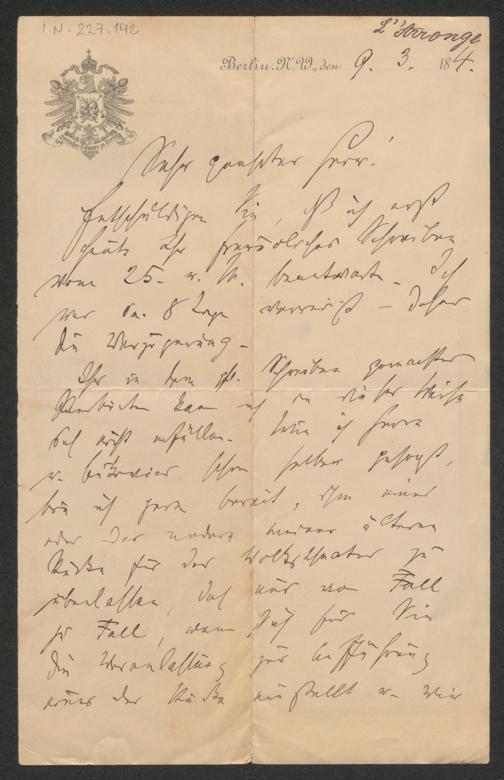 I.N-227.142
L'Arronge
Berlin. N.W., den 9. 3. 1884.
Sehr geehrter Herr!
Entschuldigen Sie, daß ich erst
heute Ihr freundliches Schreiben
vom 25. v. M. beantworte. Ich
war ca. 8 Tage verreist – daher
die Verzögerung –
Ihr in dem Schreiben gemachten
kann ich in dieser Weise
nicht erfüllen. Wie ich Herrn
v. schon selber gesagt,
bin ich gern bereit, ihm eines
oder das andere meiner älteren
Stücke für das Volkstheater zu
überlassen, doch nur von Fall
zu Fall, wenn sich für Sie
die Veranlassung zur Aufführung
eines der Stücke einstellt u. wir